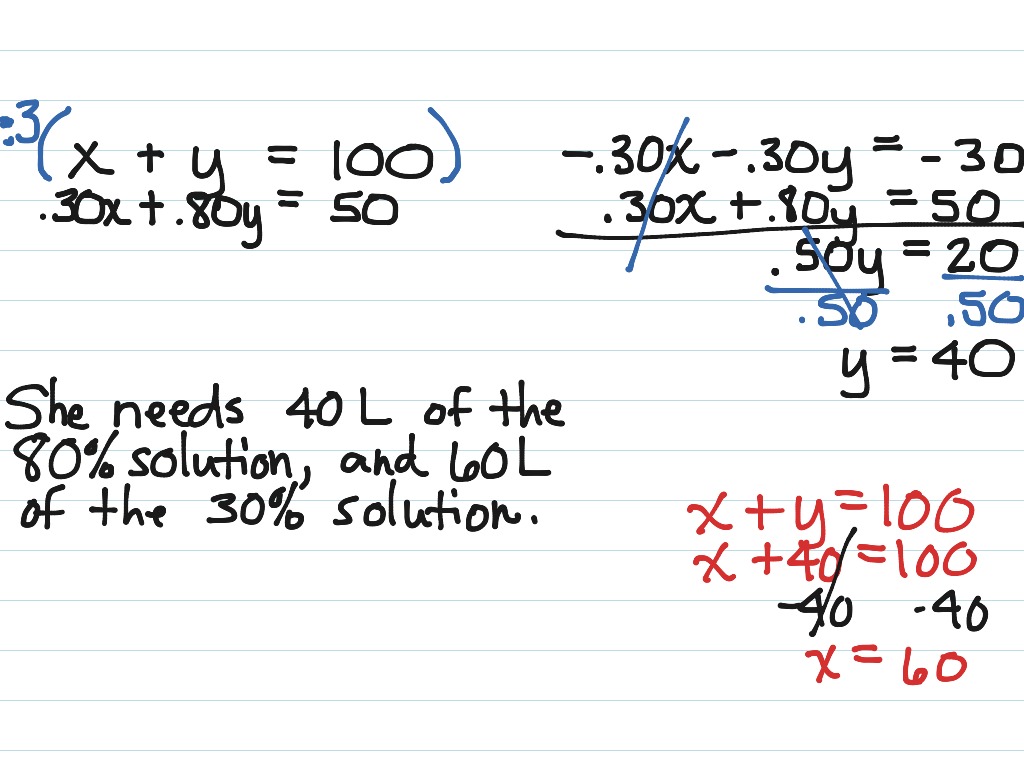 -.3( x + y = 100 )
.30x + .80y = 50
-.30x - .30y = -30
.30x + .80y = 50
.50y = 20
.50 .50
y = 40
She needs 40 L of the
80% solution, and 60 L
of the 30% solution.
x + y = 100
x + 40 = 100
-40 -40
x = 60